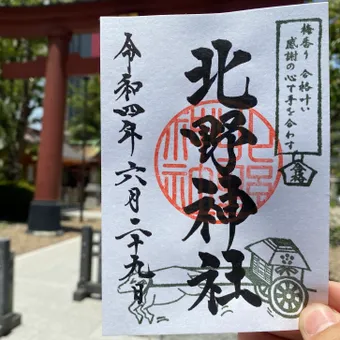 梅香り 合格叶い
感謝の心で手を合わす
北野神社
令和四年 六月二十九日